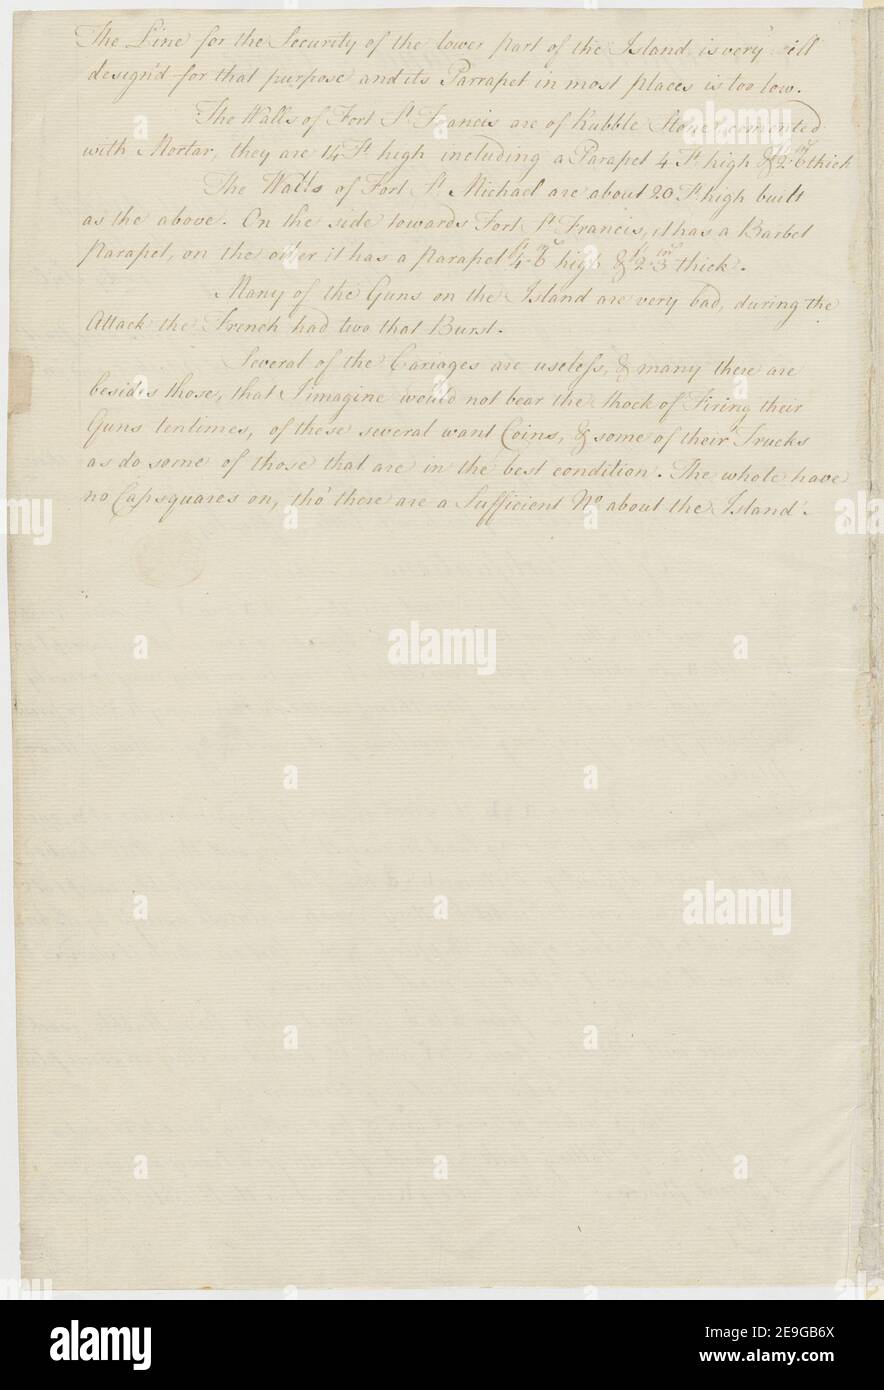 The Line for the Security of the lower part of the Island is very ill
design'd for that purpose and its Parrapet in most places is too low.
The Walls of Fort St. Francis are of Rubble Stone cemented
with Mortar, they are 14 Ft. high including a Parapet 4 Ft. high & 2ft. 6in thick
The Walls of Fort St. Michael are about 20 Ft. high built
as the above. On the side towards Fort St. Francis, it has a Barbet
parapet, on the other it has a parapet 4ft. 6in high & 2ft. 3in thick.
Many of the Guns on the Island are very bad, during the
Attack the French had two that Burst.
Several of the Cariages are useless, & many there are
besides those, that I imagine would not bear the shock of Firing their
Guns ten times, of these several want Coins, & some of their Trucks
as do some of those that are in the best condition. The whole have
no Capsquares on, tho' there are a Sufficient No. about the Island.
alamy
alamy
alamy
alamy
a
a
a
a
a
a
a
a
a
a
a
alamy
Image ID: 2E9GB6X
www.alamy.com